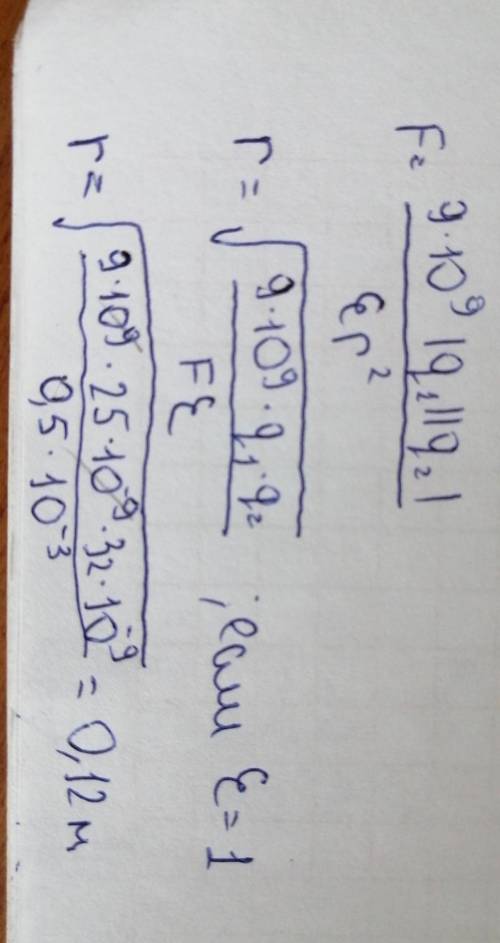 F = 9·10⁹ |q₁||q₂| / εr²
r = √(9·10⁹·q₁·q₂ / Fε) ; если ε = 1
r = √(9·10⁹·25·10⁻⁹·32·10⁻⁹ / 0,5·10⁻³) = 0,12 м